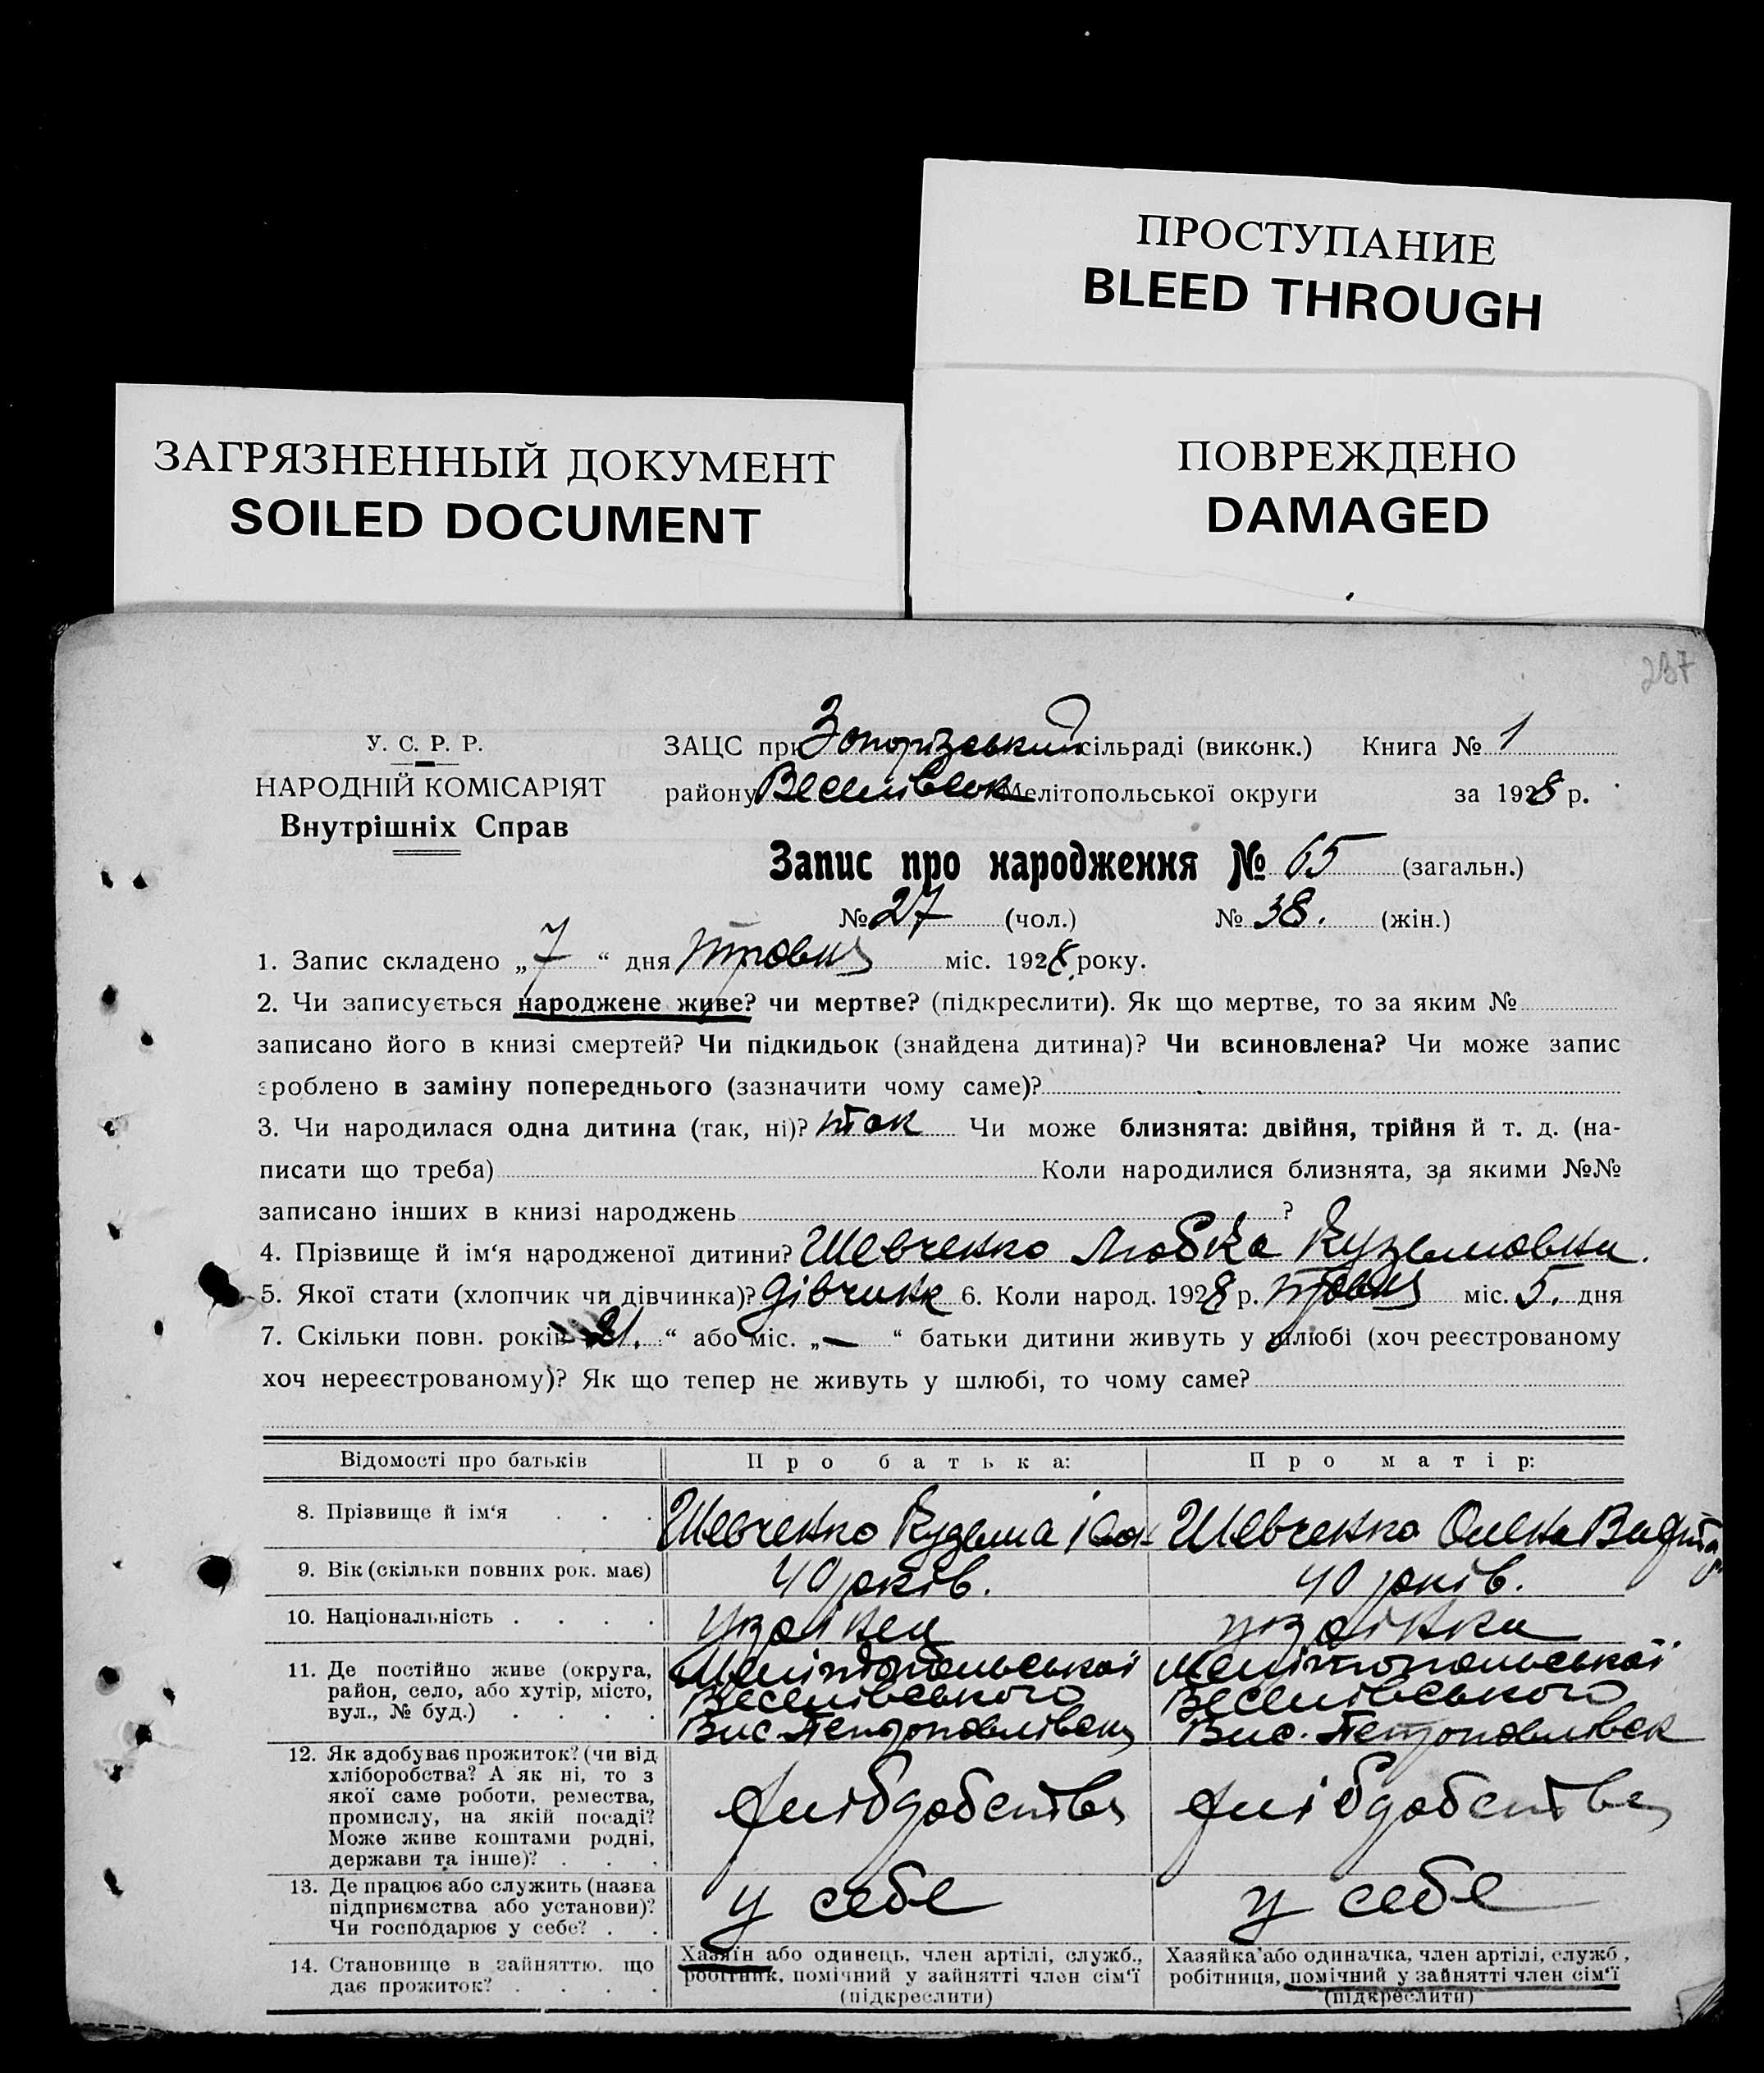 ПРОСТУПАНИЕ
BLEED THROUGH
ЗАГРЯЗНЕННЫЙ ДОКУМЕНТ
SOILED DOCUMENT
ПОВРЕЖДЕНО
DAMAGED
237
У. С. Р. Р.
НАРОДНІЙ КОМІСАРІЯТ
Внутрішніх Справ
ЗАЦС при Запорізький сільраді (виконк.) Книга № 1
району Веселівськ Мелітопольської округи за 1928 р.
Запис про народження № 65 (загальн.)
№ 27 (чол.) № 38. (жін.)
1. Запис складено „ 7 “ дня травня міс. 1928 року.
2. Чи записується народжене живе? чи мертве? (підкреслити). Як що мертве, то за яким №
записано його в книзі смертей? Чи підкидьок (знайдена дитина)? Чи всиновлена? Чи може запис
зроблено в заміну попереднього (зазначити чому саме)?
3. Чи народилася одна дитина (так, ні)? так Чи може близнята: двійня, трійня й т. д. (на-
писати що треба) Коли народилися близнята, за якими №№
записано інших в книзі народжень ?
4. Прізвище й ім‘я народженої дитини? Шевченко Любка Кузьмовна.
5. Якої стати (хлопчик чи дівчинка)? дівчинк 6. Коли народ. 1928 р. травня міс. 5. дня
7. Скільки повн. років 21. “ або міс. „ — “ батьки дитини живуть у шлюбі (хоч реєстрованому
хоч нереєстрованому)? Як що тепер не живуть у шлюбі, то чому саме?
Відомості про батьків Про батька: Про матір:
8. Прізвище й ім‘я Шевченко Кузьма Шевченко Олена
9. Вік (скільки повних рок. має) 40 років. 40 років.
10. Національність
11. Де постійно живе (округа, Мелітопольської Мелітопольської
район, село, або хутір, місто, Веселівського Веселівського
вул., № буд.) Вис. Петропавлівськ Вис. Петропавлівск
12. Як здобуває прожиток? (чи від
хліборобства? А як ні, то з
якої саме роботи, ремества,
промислу, на якій посаді? хлібробства хлібробства
Може живе коштами родні,
держави та інше)?
13. Де працює або служить (назва
підприємства або установи)? у себе у себе
Чи господарює у себе?
14. Становище в зайняттю, що
дає прожиток?
Хазяїн або одинець, член артілі, служб.,
робітник, помічний у зайнятті член сім‘ї
(підкреслити)
Хазяйка або одиначка, член артілі, служб.,
робітниця, помічний у зайнятті член сім‘ї
(підкреслити)